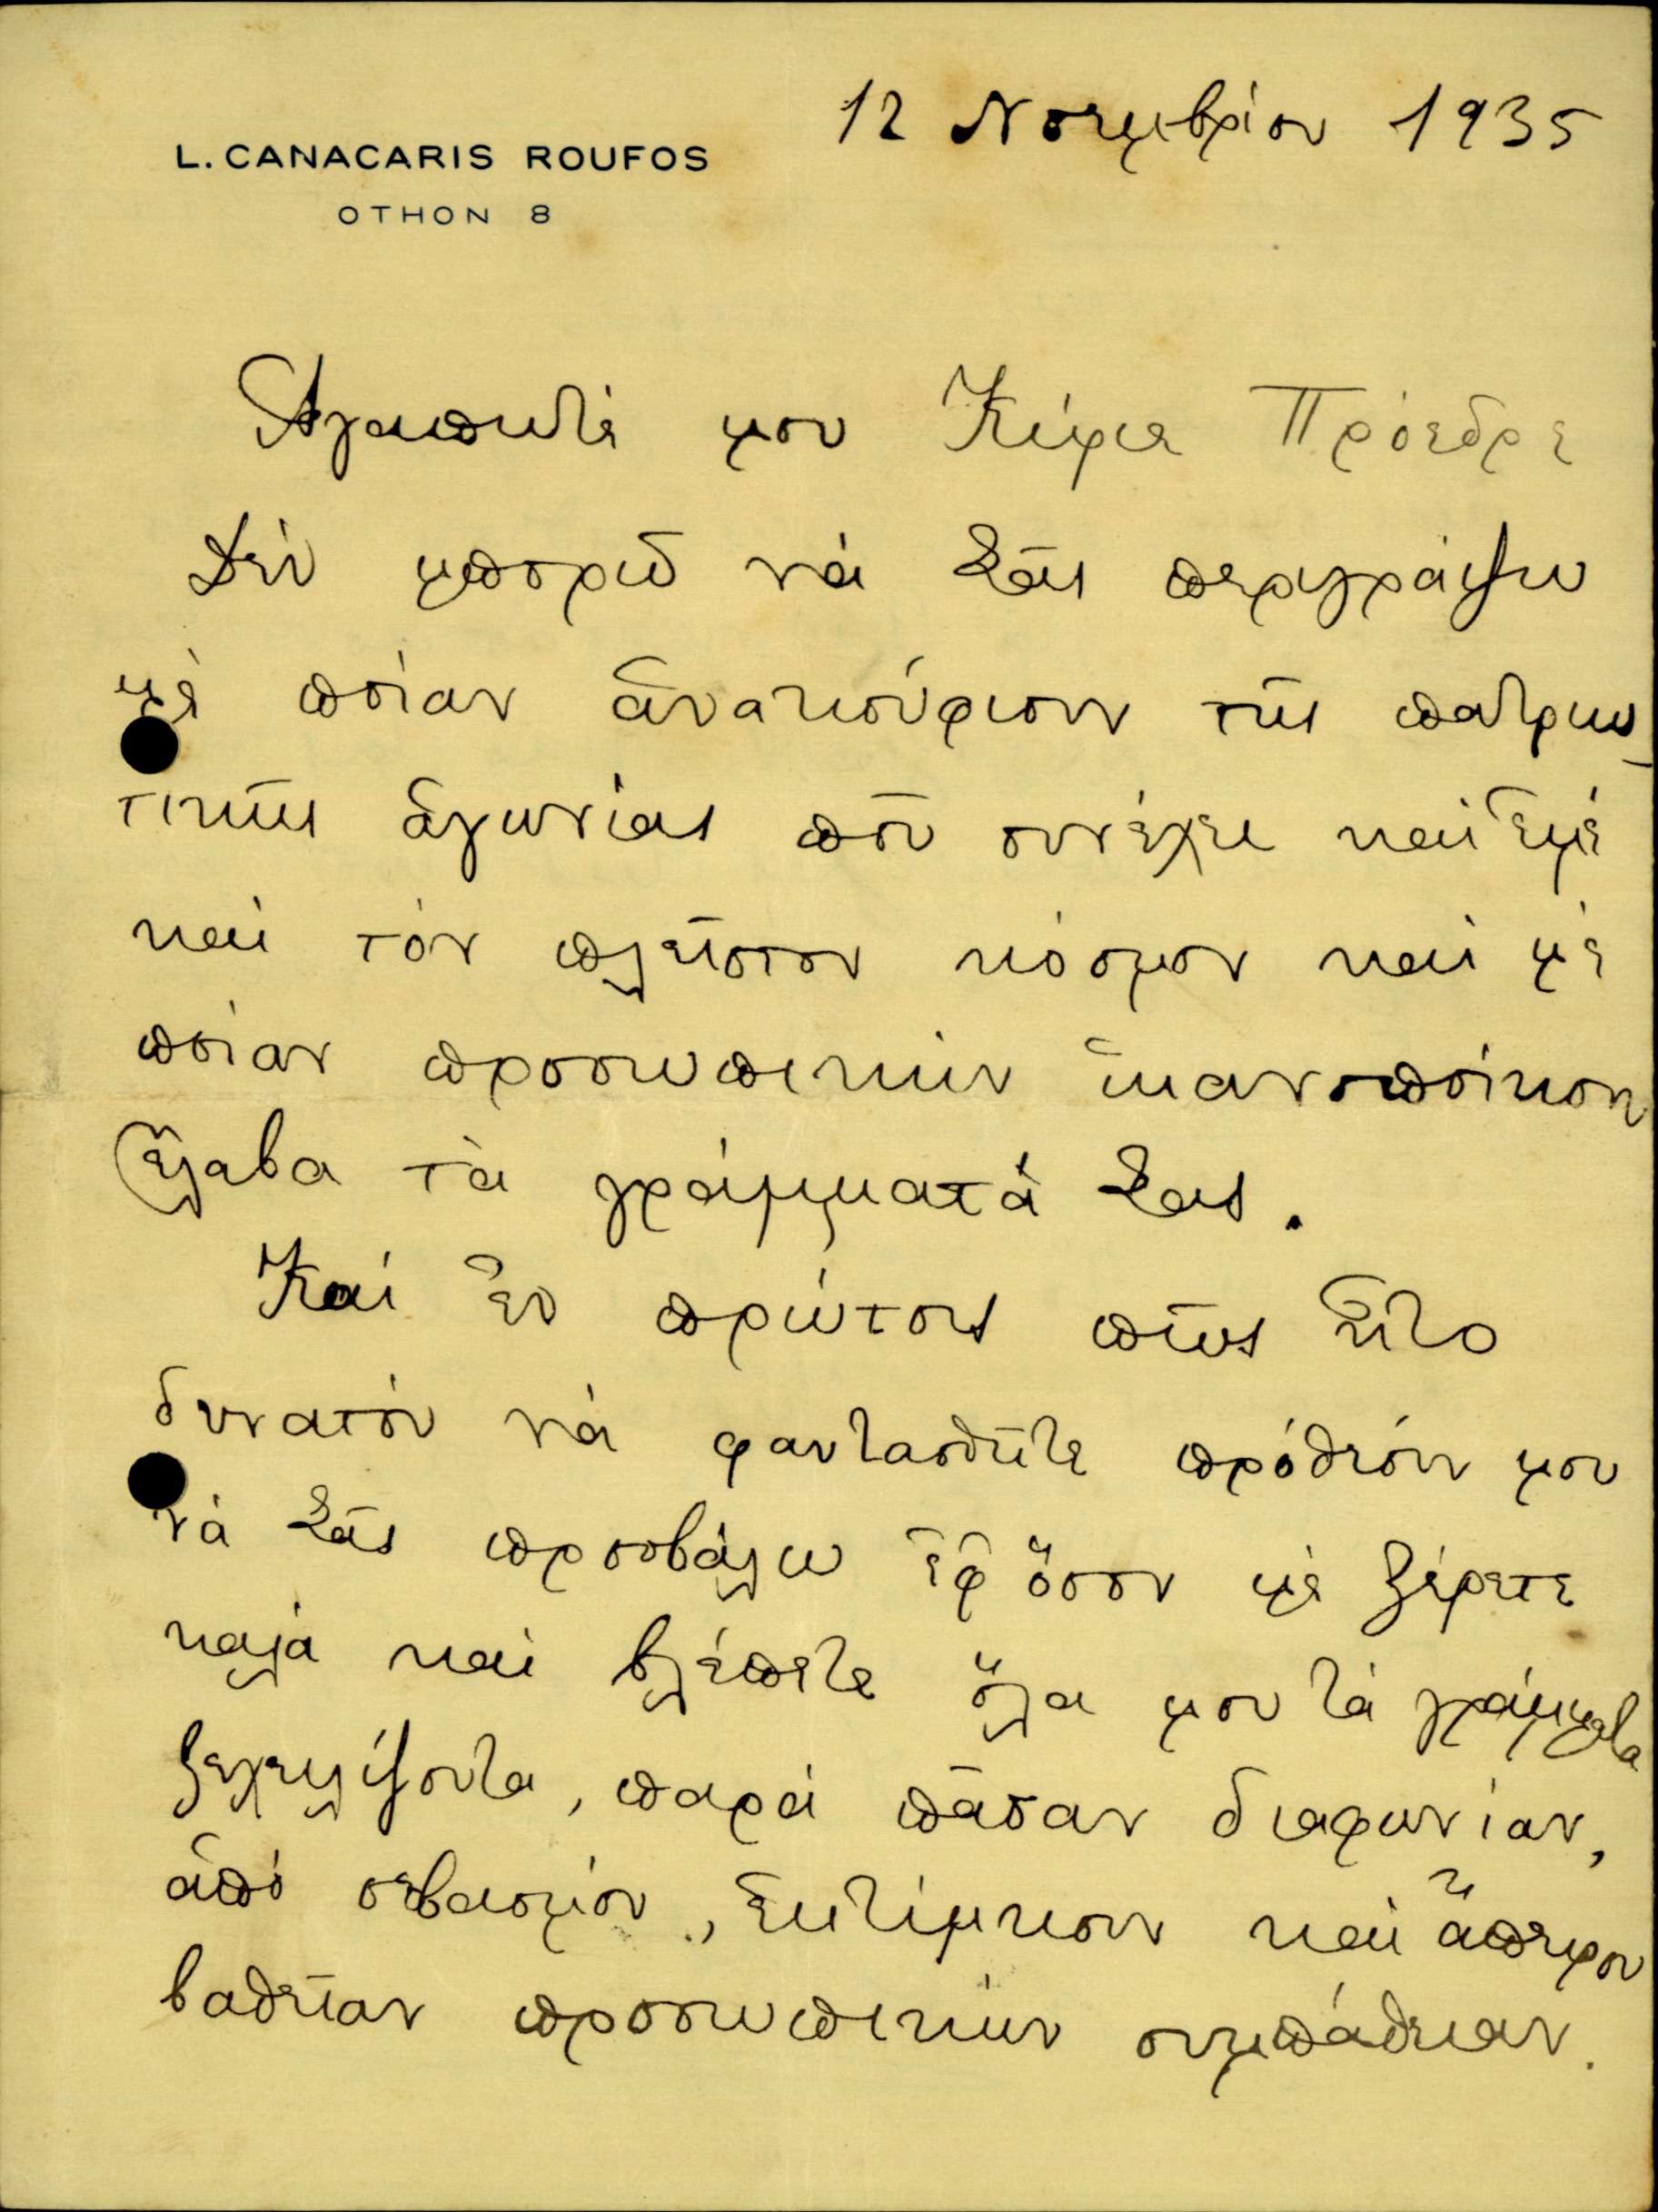 12 Νοεμβρίου 1935
L. CANACARIS ROUFOS
OTHON 8
Ἀγαπητέ μου Κύριε Πρόεδρε
Δὲν μπορῶ νὰ Σᾶς περιγράψω
μὲ ποίαν ἀνακούφισιν τῆς πατριω-
τικῆς ἀγωνίας ποῦ συνέχει καὶ ἐμὲ
καὶ τὸν πλεῖστον κόσμον καὶ μὲ
ποίαν προσωπικὴν ἱκανοποίησιν
ἔλαβα τὰ γράμματά Σας.
Καὶ ἐν πρώτοις πῶς εἶτο
δυνατὸν νὰ φαντασθῆτε πρόθεσίν μου
νὰ Σᾶς προσβάλω ἐφ ὅσον μὲ ξέρετε
καλὰ καὶ βλέπετε ὅλα μου τὰ γράμματα
ξεχειλίζοντα, παρὰ πᾶσαν διαφωνίαν,
ἀπὸ σεβασμόν, ἐκτίμησιν καὶ ἄπειρον
βαθεῖαν προσωπικὴν συμπάθειαν.